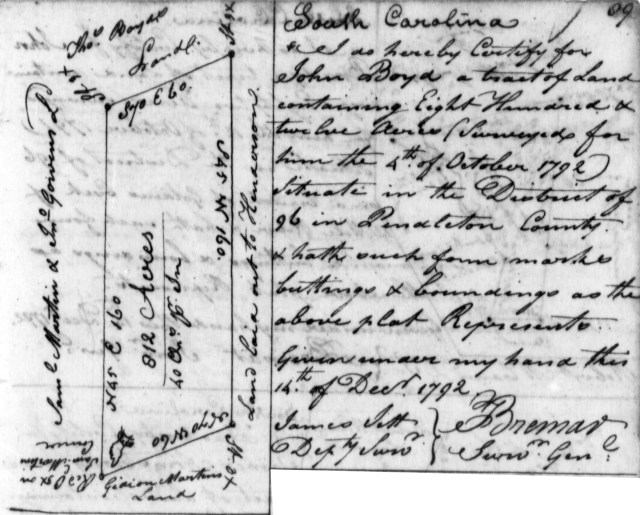 89
South Carolina
& I do hereby Certify for
John Boyd a tract of Land
containing Eight Hundred &
twelve Acres (Surveyed for
him the 4th. of October 1792)
Situate in the District of
96 in Pendleton County.
& hath such form marks
buttings & boundings as the
above plat Represents.
Given under my hand this
14th. of Decr. 1792
James Jett
Depty Survr.
F Bremar
Survr. Genl.
Thos. Boyds
Land.
S70 E 60.
St. 3X
Saml. Martin & Jno. Gowens Ld
N45 E 160
812 Acres.
40 Chs. Pr. In
S45 W 160.
Land laid out to Henderson.
N70 W 60
St. 3X
Gidion Martins
Land
Saml. Martins
Corner